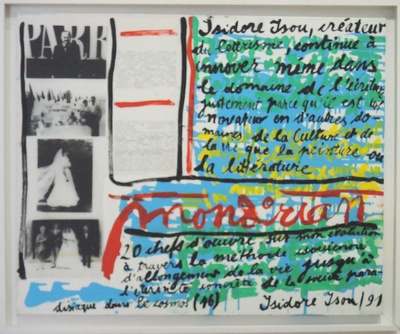 PARI
Isidore Isou, créateur
du lettrisme, continue à
innover même dans
le domaine de l'écriture
justement parce qu'il est un
novateur en d'autres do-
maines de la Culture et de
la vie que la peinture ou
la littérature
mondrian
20 chefs d'œuvre sur mon évolution
à travers la méthode isouienne
d'allongement de la vie jusqu'à
l'éternité concrète de la société para-
disiaque dans le cosmos (16) Isidore Isou/91